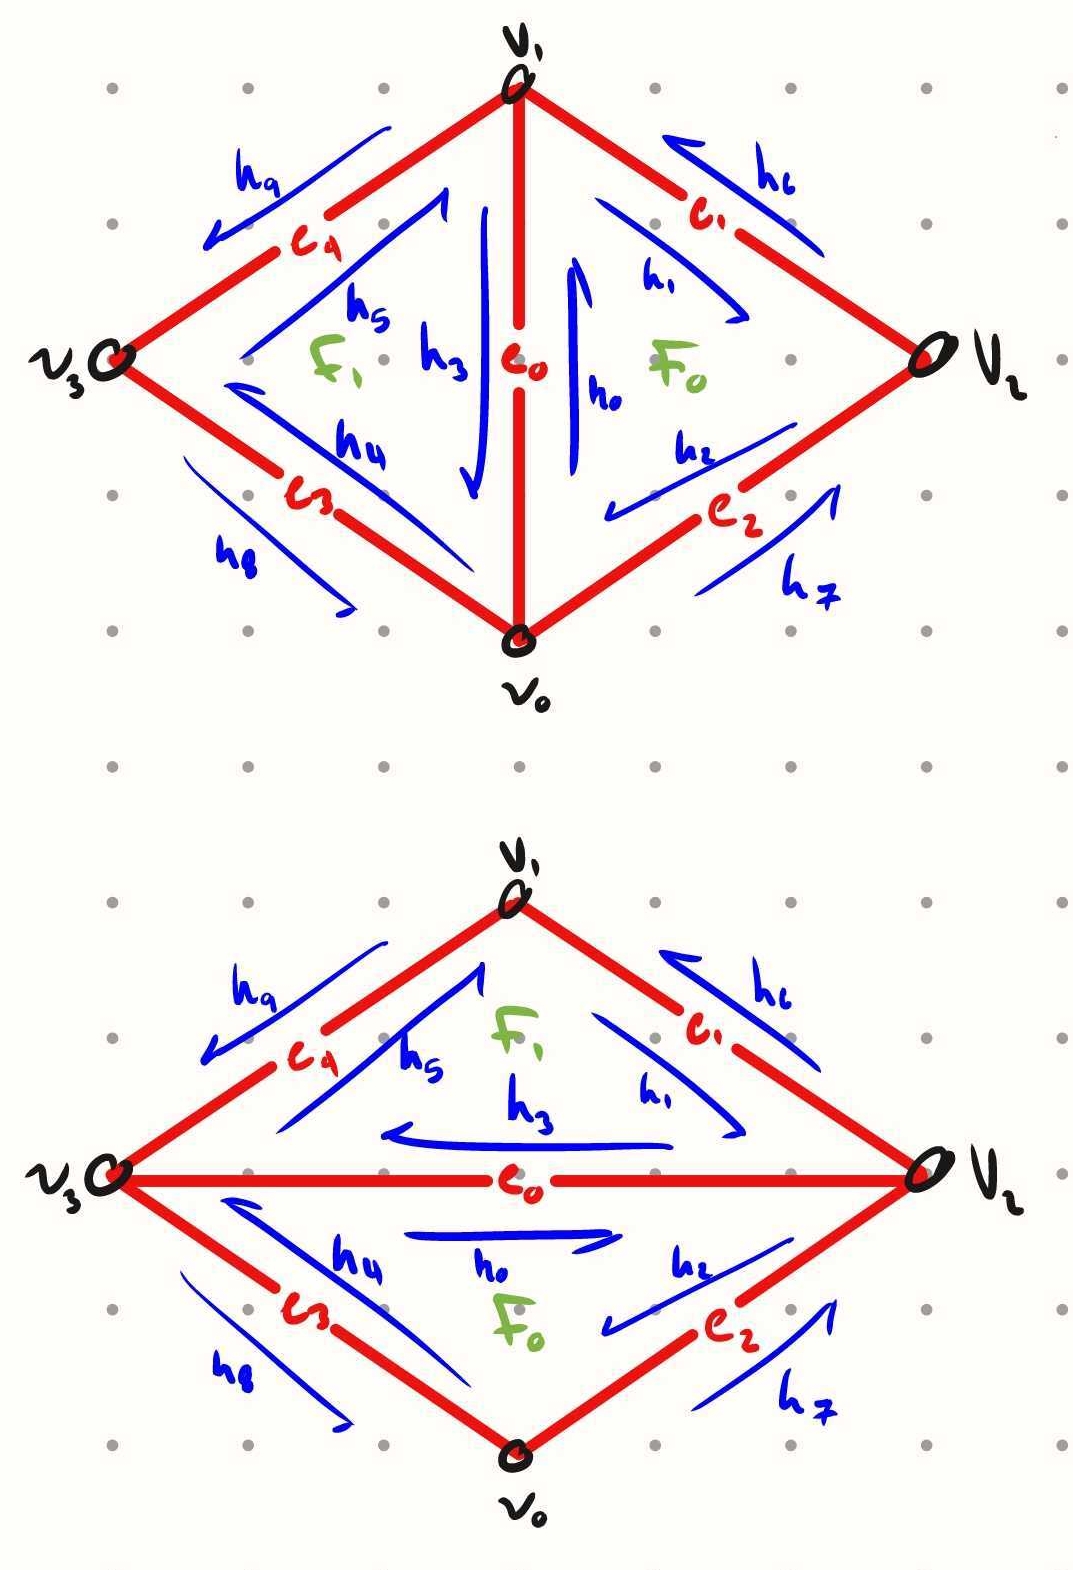 v₁
h₉
h₆
e₄
e₁
h₅
h₁
v₃
F₁
h₃
e₀
F₀
V₂
h₀
h₄
h₂
e₃
e₂
h₈
h₇
v₀
v₁
h₉
h₆
F₁
e₄
e₁
h₅
h₃
h₁
v₃
e₀
V₂
h₄
h₀
h₂
e₃
F₀
e₂
h₈
h₇
v₀